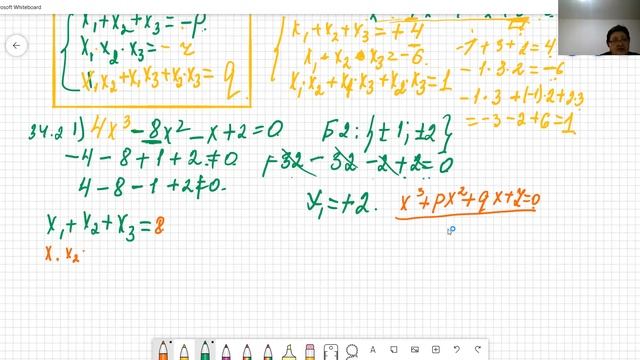 Microsoft Whiteboard
x₁+x₂+x₃=-p.
x₁·x₂·x₃=-r
x₁x₂+x₁x₃+x₂x₃= q
x₁+x₂+x₃ = +4
x₁·x₂·x₃=-6.
x₁·x₂+x₁·x₃+x₂·x₃=1
-1+3+2=4
-1·3·2=-6
-1·3+(-1)·2+2·3
=-3-2+6=1
34.2 1) 4x³-8x²-x+2=0
-4-8+1+2≠0
4-8-1+2≠0.
x₁+x₂+x₃=8
x·x₂·
Б2: {±1; ±2}
+32-32-2+2=0
x₁=+2.
x³+px²+qx+r=0
A